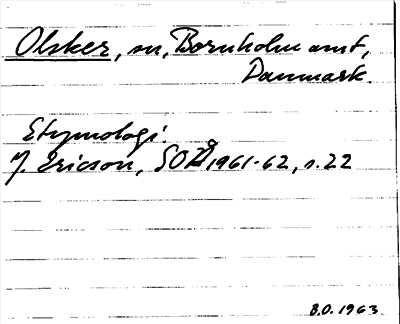 Olsker, sn, Bornholm amt,
Danmark.
Etymologi.
J. Ericson, SOÅ 1961-62, s. 22
B.O. 1963